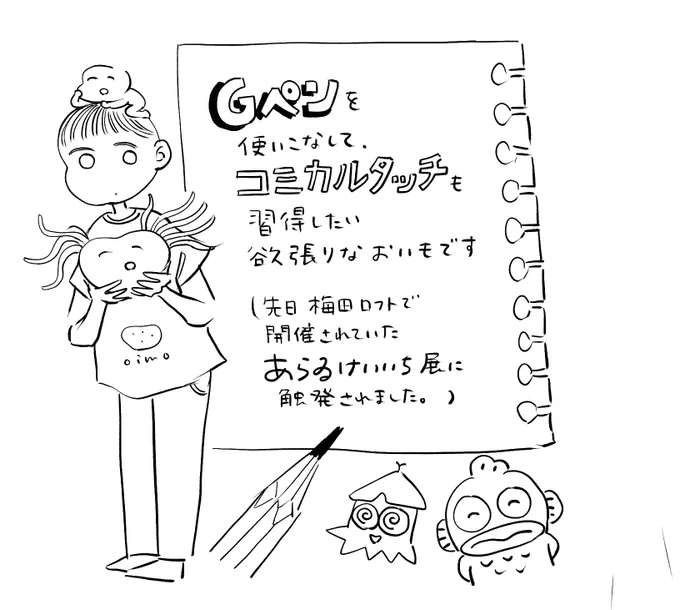 Gペンを
使いこなして、
コミカルタッチも
習得したい
欲張りなおいもです
(先日 梅田ロフトで
開催されていた
あらゐけいいち展に
触発されました。)
oimo